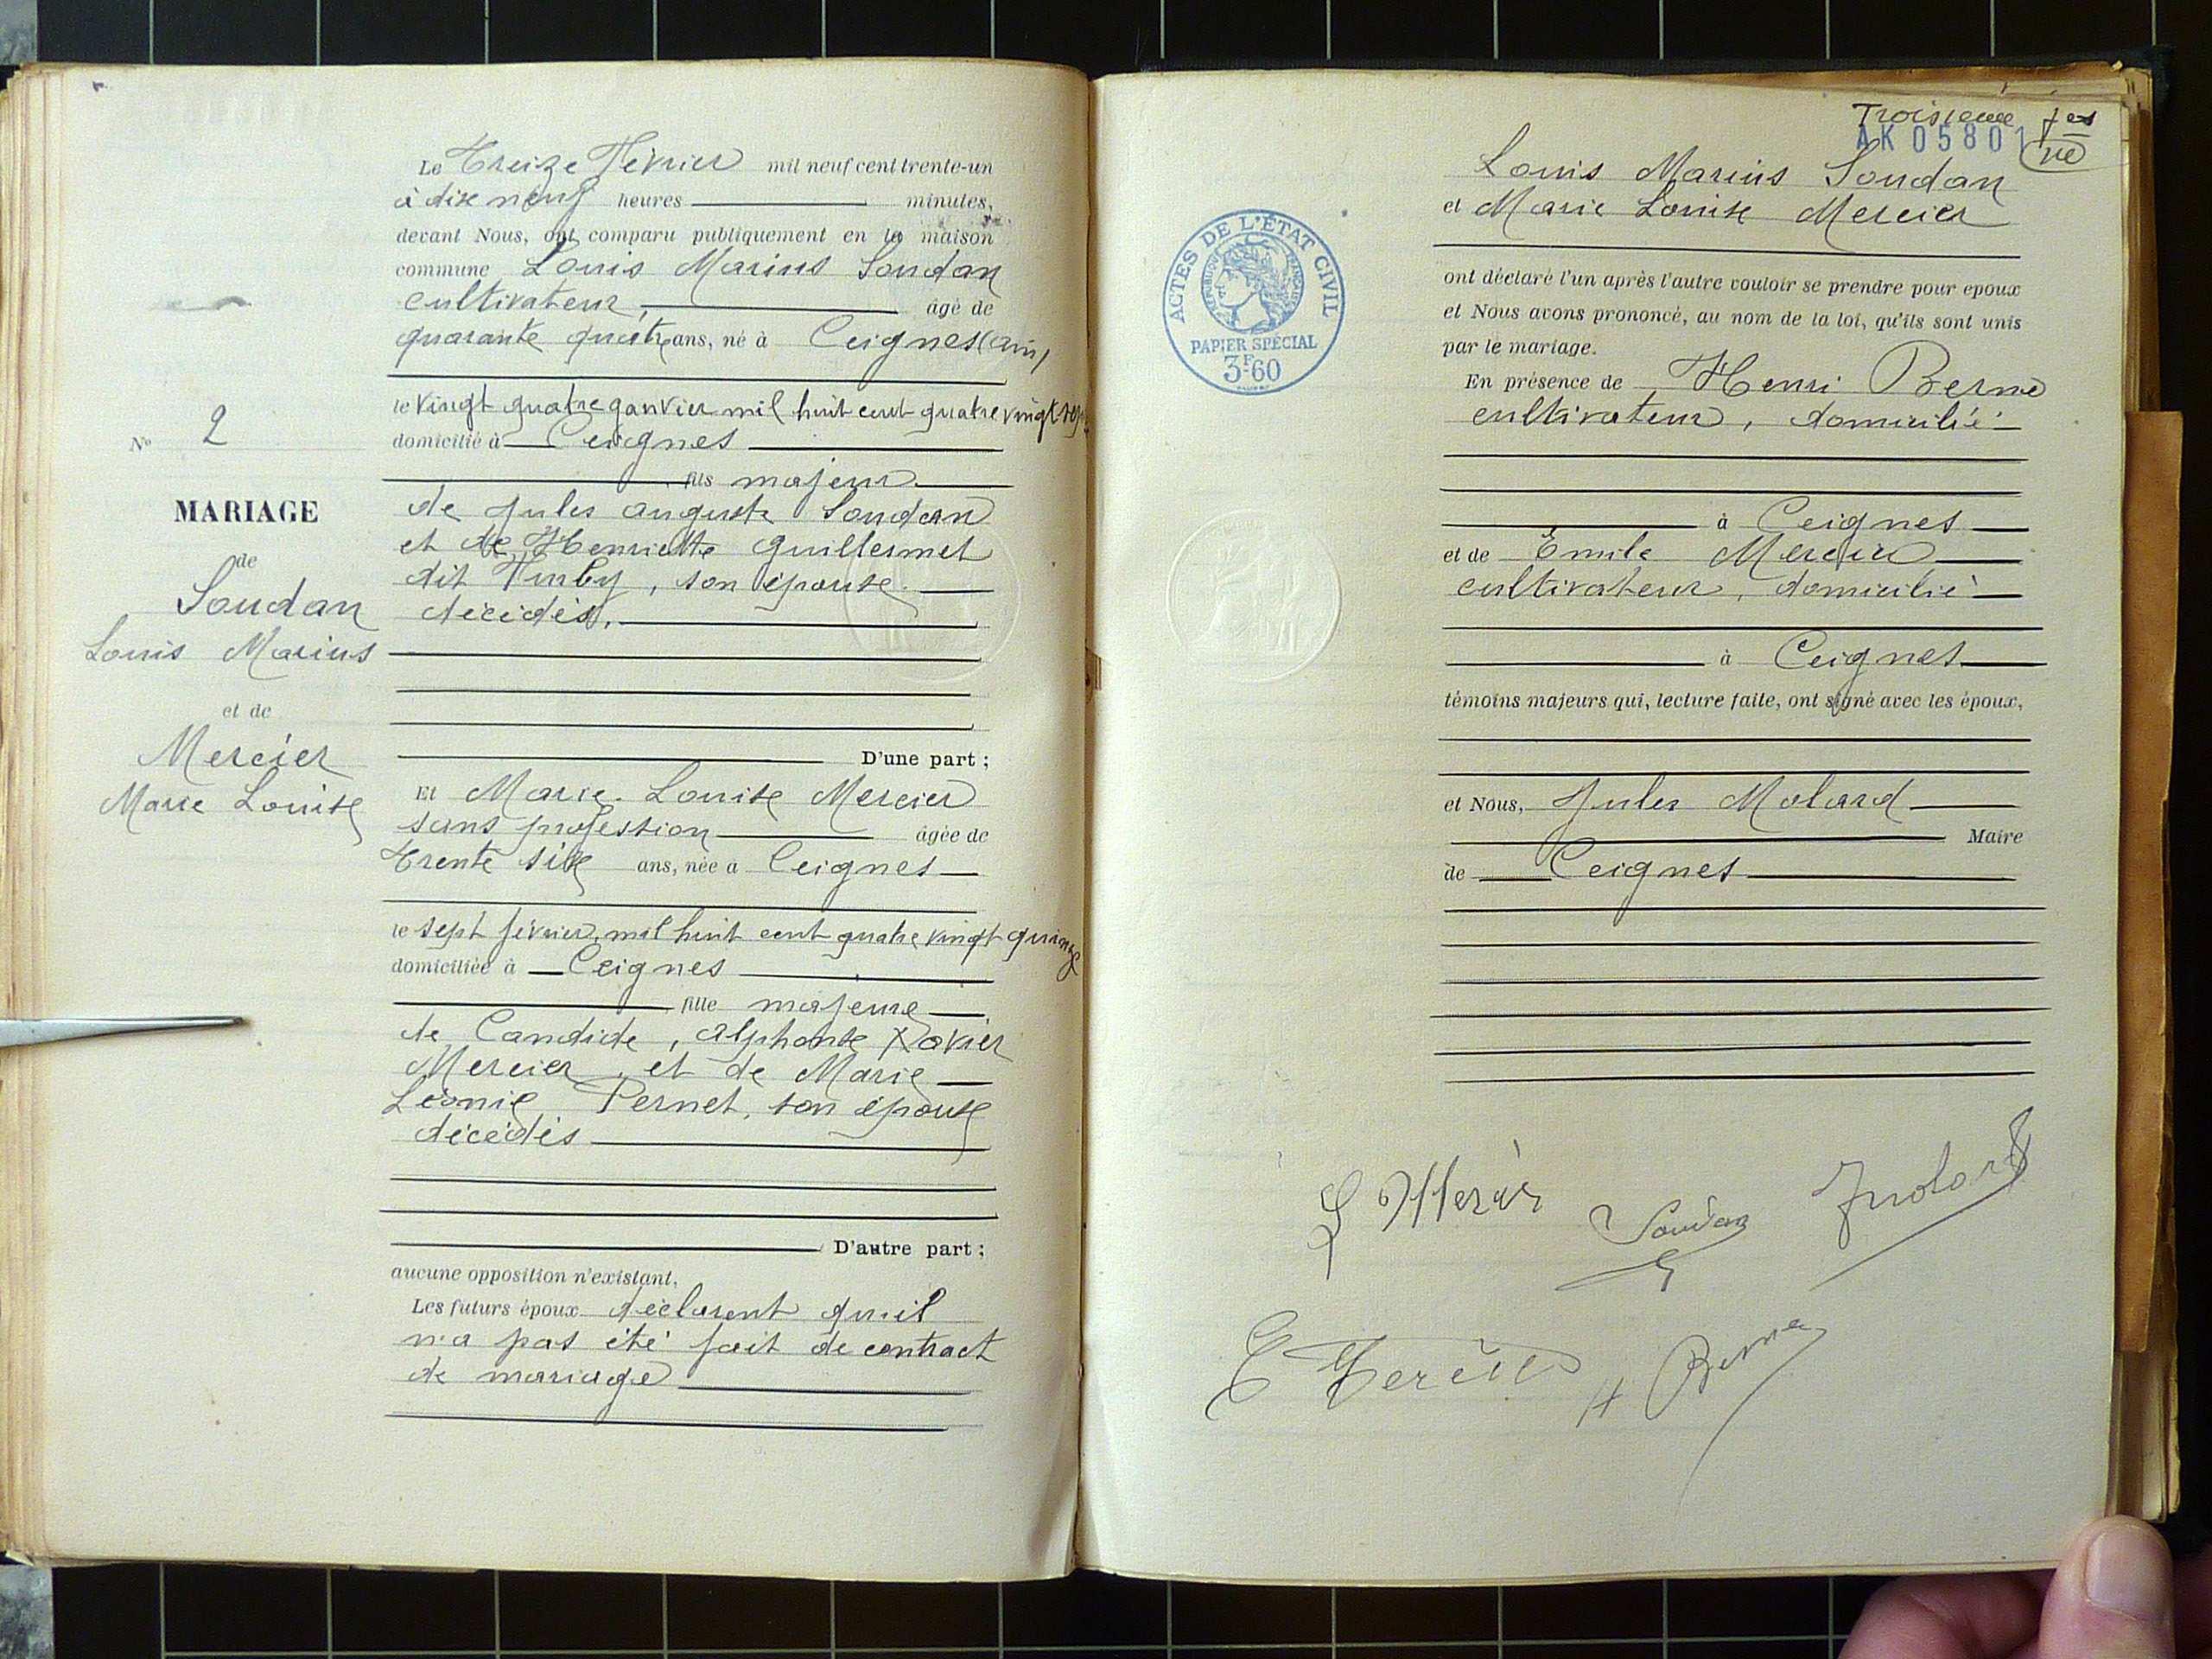 N° 2
MARIAGE
de
Soudan
Louis Marius
et de
Mercier
Marie Louise
Le Treize Février mil neuf cent trente-un
à dix neuf heures minutes,
devant Nous, ont comparu publiquement en la maison
commune Louis Marius Soudan
cultivateur, âgé de
quarante quatre ans, né à Ceignes (ain)
le vingt quatre janvier mil huit cent quatre vingt sept
domicilié à Ceignes
fils majeur
de Jules auguste Soudan
et de Henriette Guillermet
dit Furby, son épouse
décédés.
D'une part ;
Et Marie Louise Mercier
sans profession âgée de
trente six ans, née à Ceignes
le sept février mil huit cent quatre vingt quinze
domiciliée à Ceignes
fille majeure
de Candide, alphonse Xavier
Mercier, et de Marie
Léonie Pernet, son épouse
décédés
D'autre part ;
aucune opposition n'existant,
Les futurs époux déclarent qu'il
n'a pas été fait de contract
de mariage
Troisième
AK 05801
ACTES DE L'ÉTAT CIVIL
RÉPUBLIQUE FRANÇAISE
PAPIER SPÉCIAL
3F60
Louis Marius Soudan
et Marie Louise Mercier
ont déclaré l'un après l'autre vouloir se prendre pour époux
et Nous avons prononcé, au nom de la loi, qu'ils sont unis
par le mariage.
En présence de Henri Berne
cultivateur, domicilié
à Ceignes
et de Emile Mercier
cultivateur, domicilié
à Ceignes
témoins majeurs qui, lecture faite, ont signé avec les époux,
et Nous, Jules Molard
Maire
de Ceignes
L Mercier Soudan J Molard
E Mercier H Berne